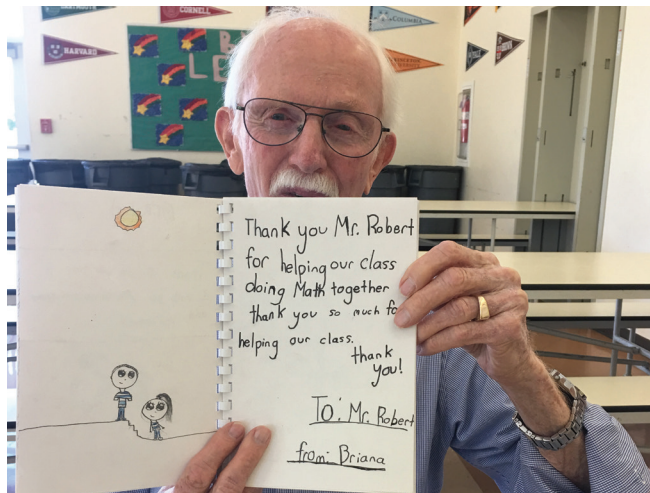 HARVARD
CORNELL
COLUMBIA
Thank you Mr. Robert
for helping our class
doing Math together
thank you so much
helping our class.
thank
you!
To: Mr. Robert
from: Briana